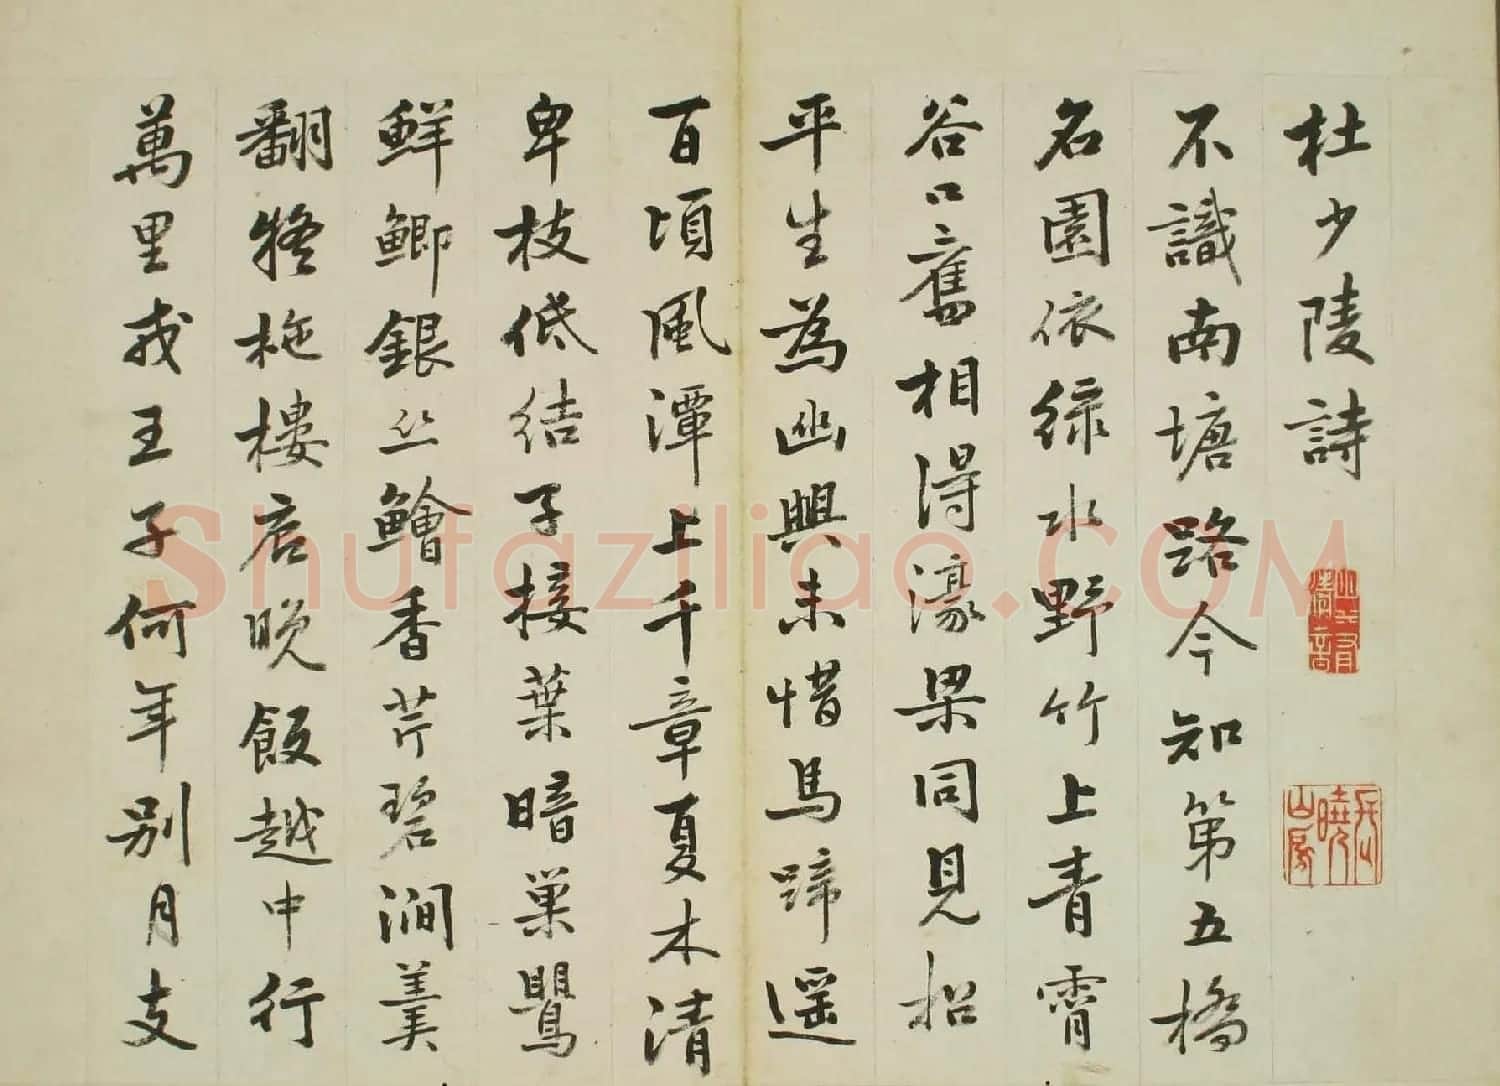 杜少陵詩
不識南塘路今知第五橋
名園依綠水野竹上青霄
谷口舊相得濠梁同見招
平生為幽興未惜馬蹄遥
百頃風潭上千章夏木清
卑枝低結子接葉暗巢鸎
鮮鯽銀丝鱠香芹碧澗羹
翻疑柂樓底晚飯越中行
萬里戎王子何年別月支
Shufaziliao.COM